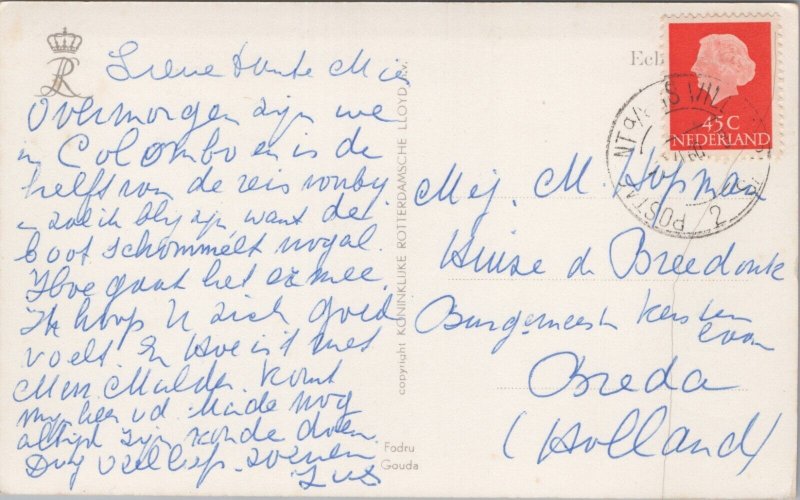 Lieve tante Mie,
Overmorgen zijn we
in Colombo en is de
helft van de reis voorbij
zal ik blij zijn want de
boot schommelt nogal.
Hoe gaat het er mee
Ik hoop U zich goed
voelt. En hoe is het met
Mevr. Mulder. Komt
mijnheer v.d. Made nog
altijd zijn ronde doen.
Dag veel liefs. zoenen
Echt
45C
NEDERLAND
POSTA
2
Mej. M. Hopman
Huize de Breedonk
Burgemeester Kerstens
Breda
(Holland)
copyright KONINKLIJKE ROTTERDAMSCHE LLOYD N.V.
Fodru
Gouda